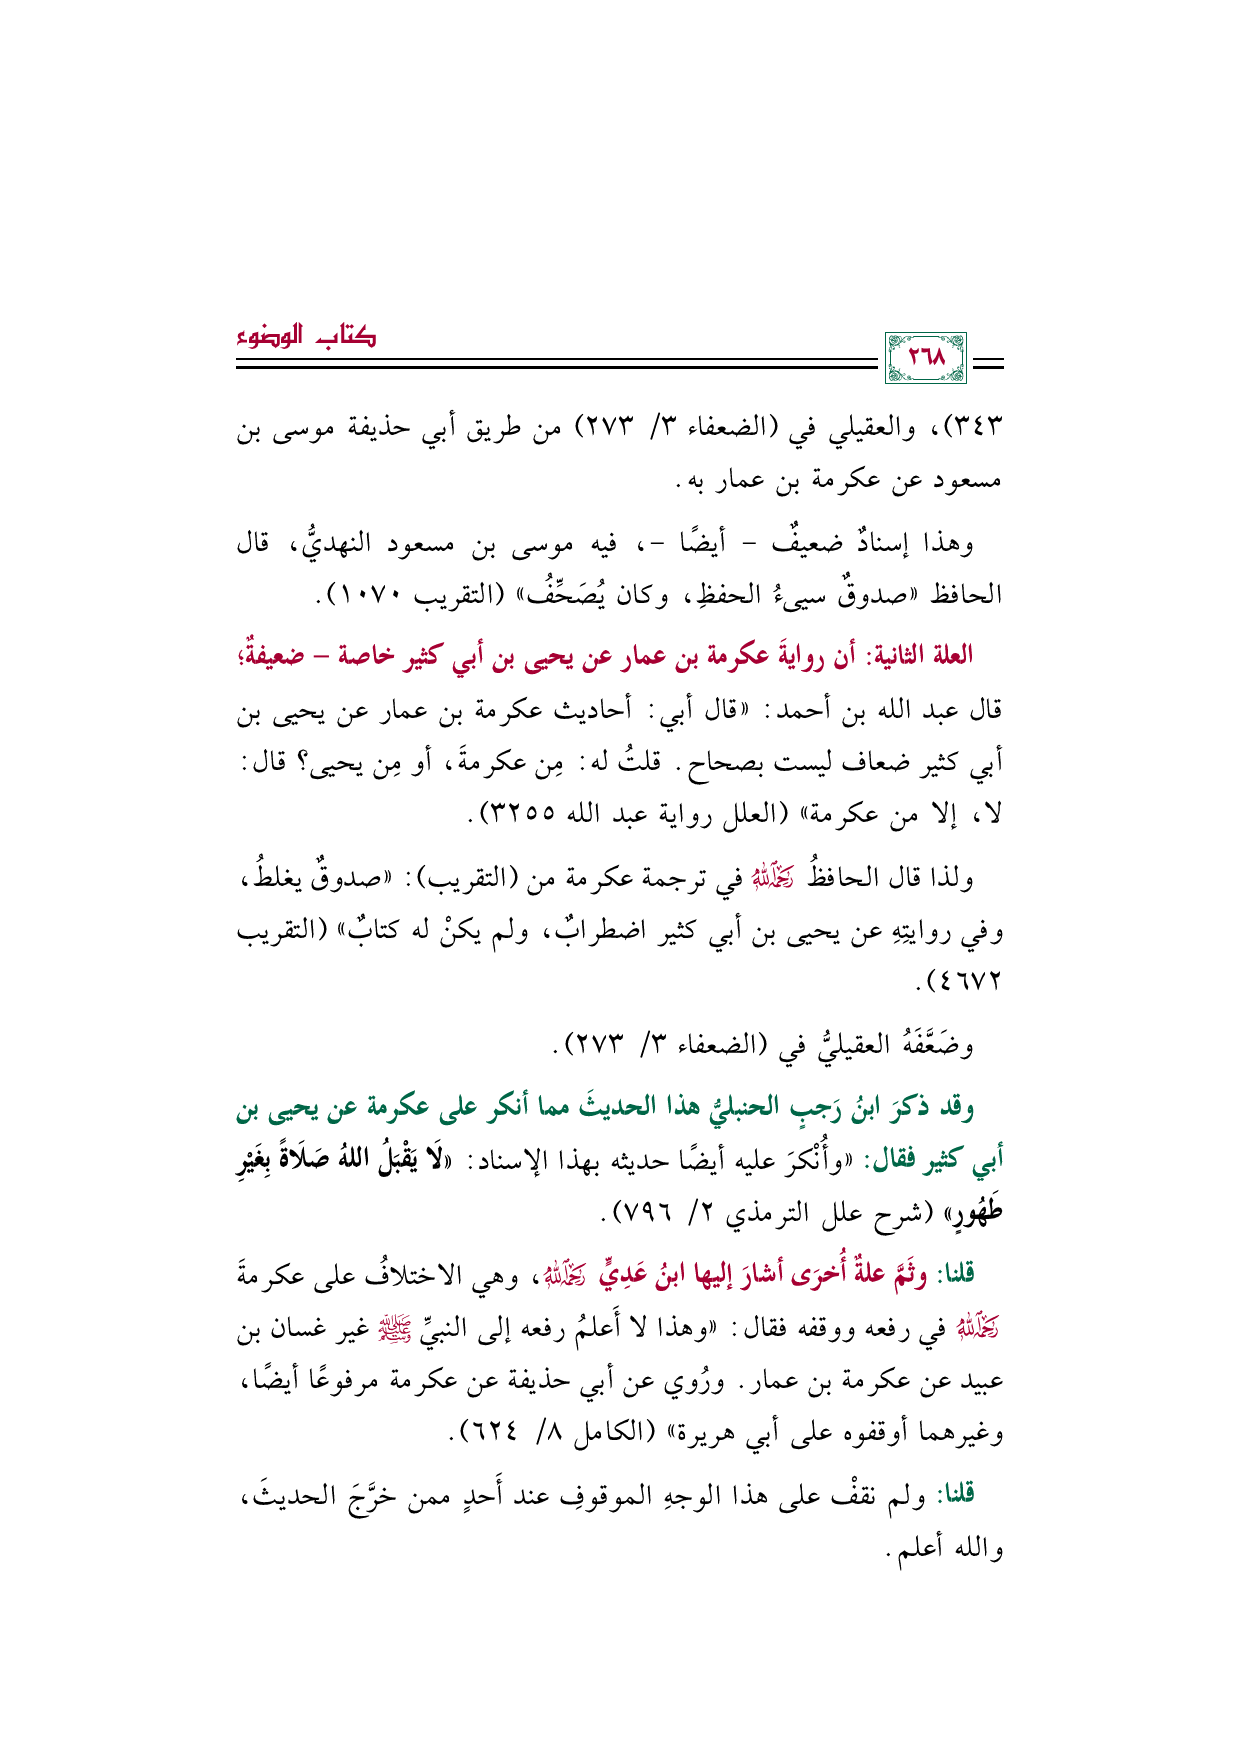 كتاب الوضوء
٢٦٨
٣٤٣)، والعقيلي في (الضعفاء ٣/ ٢٧٣) من طريق أبي حذيفة موسى بن
مسعود عن عكرمة بن عمار به.
وهذا إسنادٌ ضعيفٌ - أيضًا -، فيه موسى بن مسعود النهديُّ، قال
الحافظ «صدوقٌ سيىءُ الحفظِ، وكان يُصَحِّفُ» (التقريب ١٠٧٠).
العلة الثانية: أن روايةَ عكرمة بن عمار عن يحيى بن أبي كثير خاصة - ضعيفةٌ؛
قال عبد الله بن أحمد: «قال أبي: أحاديث عكرمة بن عمار عن يحيى بن
أبي كثير ضعاف ليست بصحاح. قلتُ له: مِن عكرمةَ، أو مِن يحيى؟ قال:
لا، إلا من عكرمة» (العلل رواية عبد الله ٣٢٥٥).
ولذا قال الحافظُ رَحِمَهُ اللَّهُ في ترجمة عكرمة من (التقريب): «صدوقٌ يغلطُ،
وفي روايتِهِ عن يحيى بن أبي كثير اضطرابٌ، ولم يكنْ له كتابٌ» (التقريب
٤٦٧٢).
وضَعَّفَهُ العقيليُّ في (الضعفاء ٣/ ٢٧٣).
وقد ذكرَ ابنُ رَجبٍ الحنبليُّ هذا الحديثَ مما أنكر على عكرمة عن يحيى بن
أبي كثير فقال: «وأُنْكرَ عليه أيضًا حديثه بهذا الإسناد: «لَا يَقْبَلُ اللهُ صَلَاةً بِغَيْرِ
طَهُورٍ» (شرح علل الترمذي ٢/ ٧٩٦).
قلنا: وثَمَّ علةٌ أُخرَى أشارَ إليها ابنُ عَدِيٍّ رَحِمَهُ اللَّهُ، وهي الاختلافُ على عكرمةَ
رَحِمَهُ اللَّهُ في رفعه ووقفه فقال: «وهذا لا أَعلمُ رفعه إلى النبيِّ ﷺ غير غسان بن
عبيد عن عكرمة بن عمار. ورُوي عن أبي حذيفة عن عكرمة مرفوعًا أيضًا،
وغيرهما أوقفوه على أبي هريرة» (الكامل ٨/ ٦٢٤).
قلنا: ولم نقفْ على هذا الوجهِ الموقوفِ عند أَحدٍ ممن خرَّجَ الحديثَ،
والله أعلم.